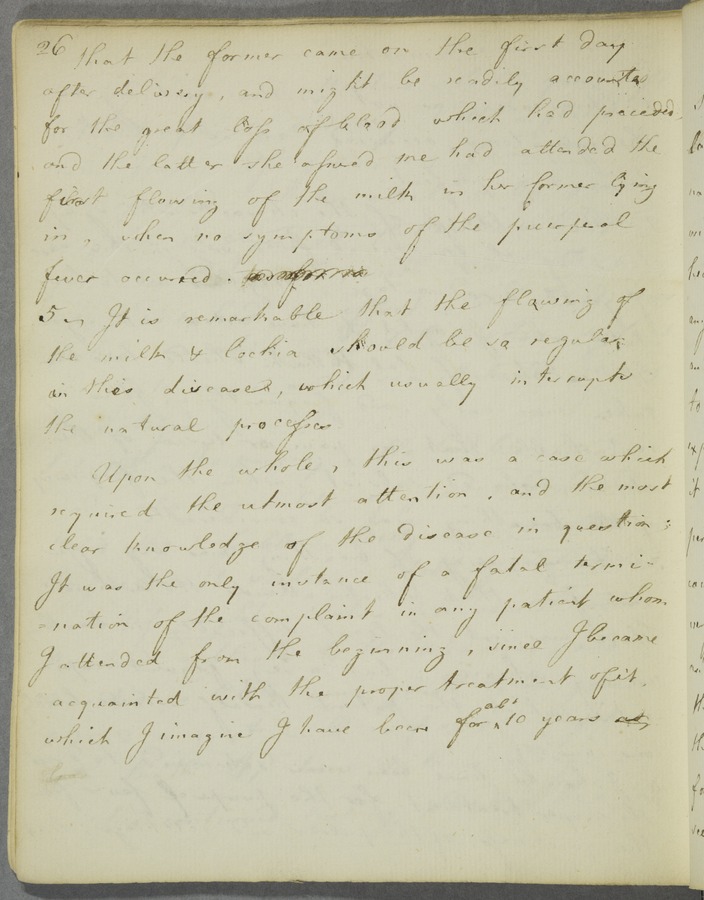 26 that the former came on the first day
after delivery, and might be readily accounted
for the great loss of blood which had preceded,
and the latter she assured me had attended the
first flowing of the milk in her former lying
in, when no symptoms of the puerperal
fever occurred.
5 It is remarkable that the flowing of
the milk & lochia should be so regular
in this disease, which usually interrupts
the natural processes
Upon the whole, this was a case which
required the utmost attention, and the most
clear knowledge of the disease in question;
It was the only instance of a fatal termi-
-nation of the complaint in any patient whom
I attended from the beginning, since I became
acquainted with the proper treatment of it,
which I imagine I have been for abt 10 years